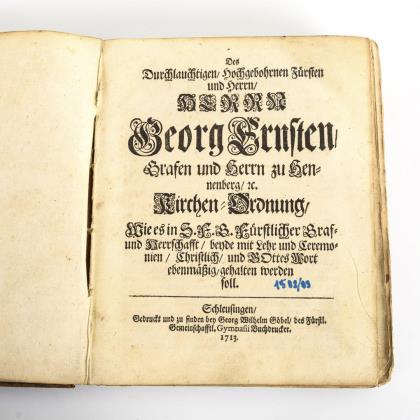 Des
Durchlauchtigen/ Hochgebohrnen Fürsten
und Herrn/
HERRN
Georg Ernsten/
Grafen und Herrn zu Hen-
nenberg/ ꝛc.
Kirchen-Ordnung/
Wie es in S. F. G. Fürstlicher Graf-
und Herrschafft/ beyde mit Lehr und Ceremo-
nien/ Christlich/ und GOttes Wort
ebenmäßig/ gehalten werden
soll.
1582/83
Schleusingen/
Gedruckt und zu finden bey Georg Wilhelm Göbel/ des Fürstl.
Gemeinschafftl. Gymnasii Buchdrucker.
1713.